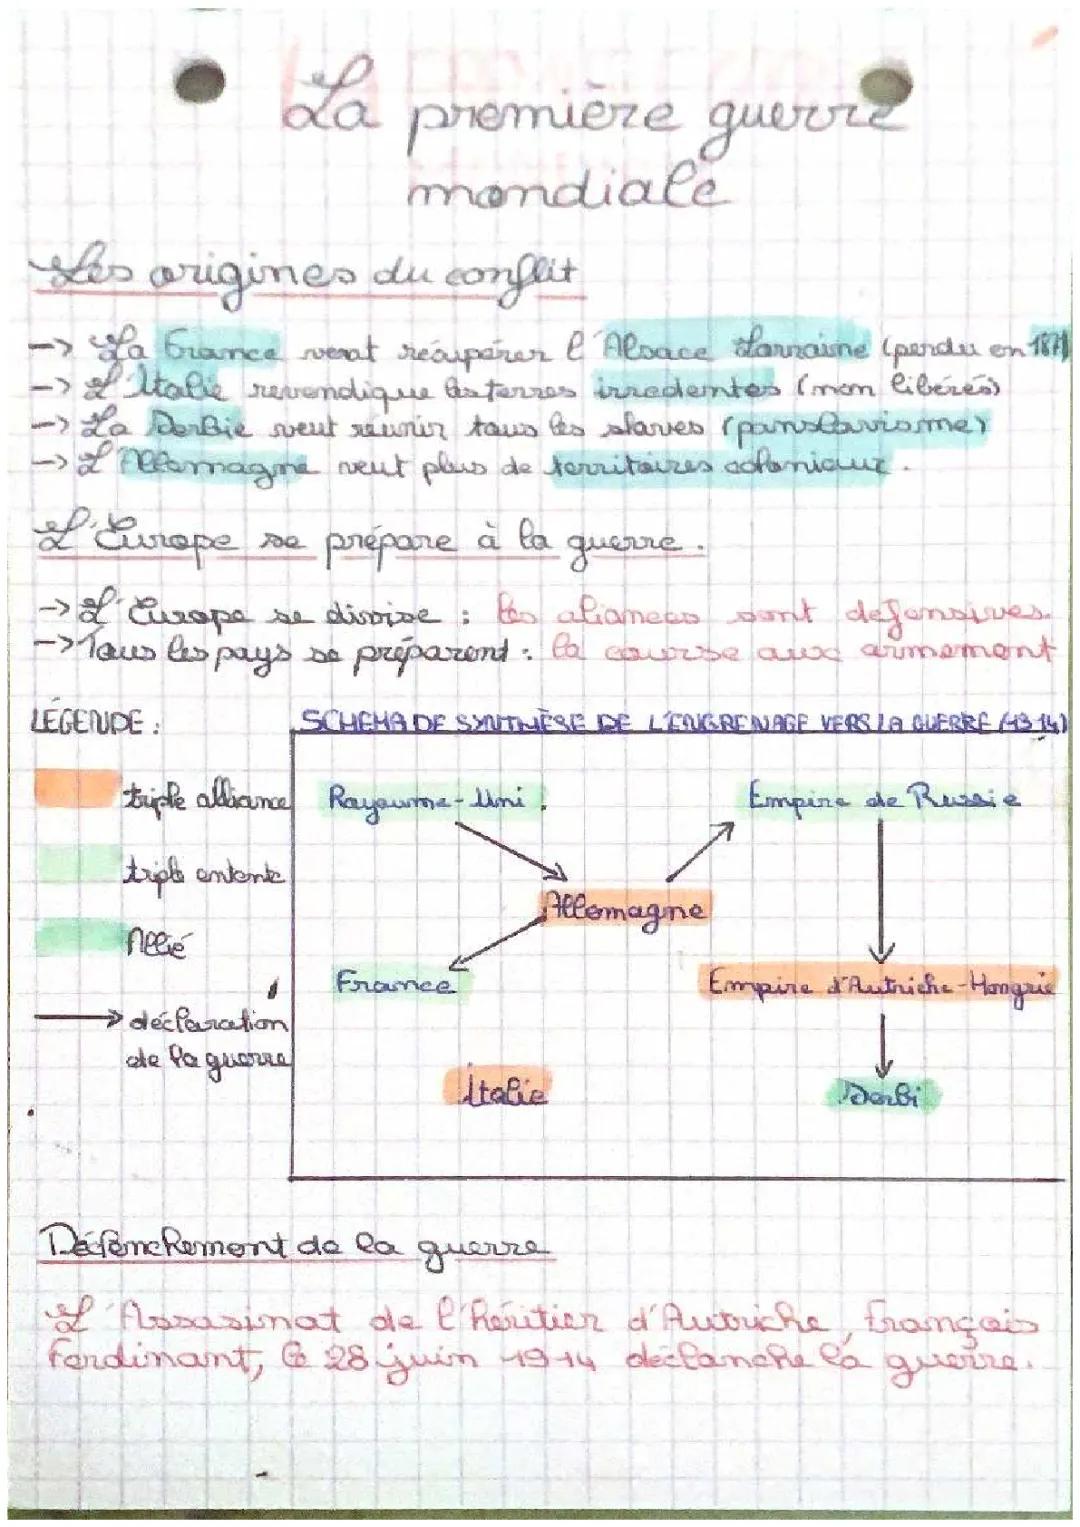 La première guerre
mondiale
Les origines du conflit
-> La France veut récupérer l'Alsace Lorraine (perdu en 1871)
-> L'Italie revendique les terres irredentes (non libérés)
-> La Serbie veut réunir tous les slaves (panslavisme)
-> L'Allemagne veut plus de territoires coloniaux.
L'Europe se prépare à la guerre.
-> L'Europe se divise : les aliances sont défensives.
-> Tous les pays se préparent : la course aux armement
LÉGENDE :
triple alliance
triple entente
Allié
déclaration
de la guerre
SCHEMA DE SYNTHÈSE DE L'ENGRENAGE VERS LA GUERRE (1914)
Royaume-Uni.
Empire de Russie
Allemagne
France
Empire d'Autriche-Hongrie
Italie
Serbi
Déclenchement de la guerre
L'Assasinat de l'héritier d'Autriche, François
Ferdinant, le 28 juin 1914 déclanche la guerre.